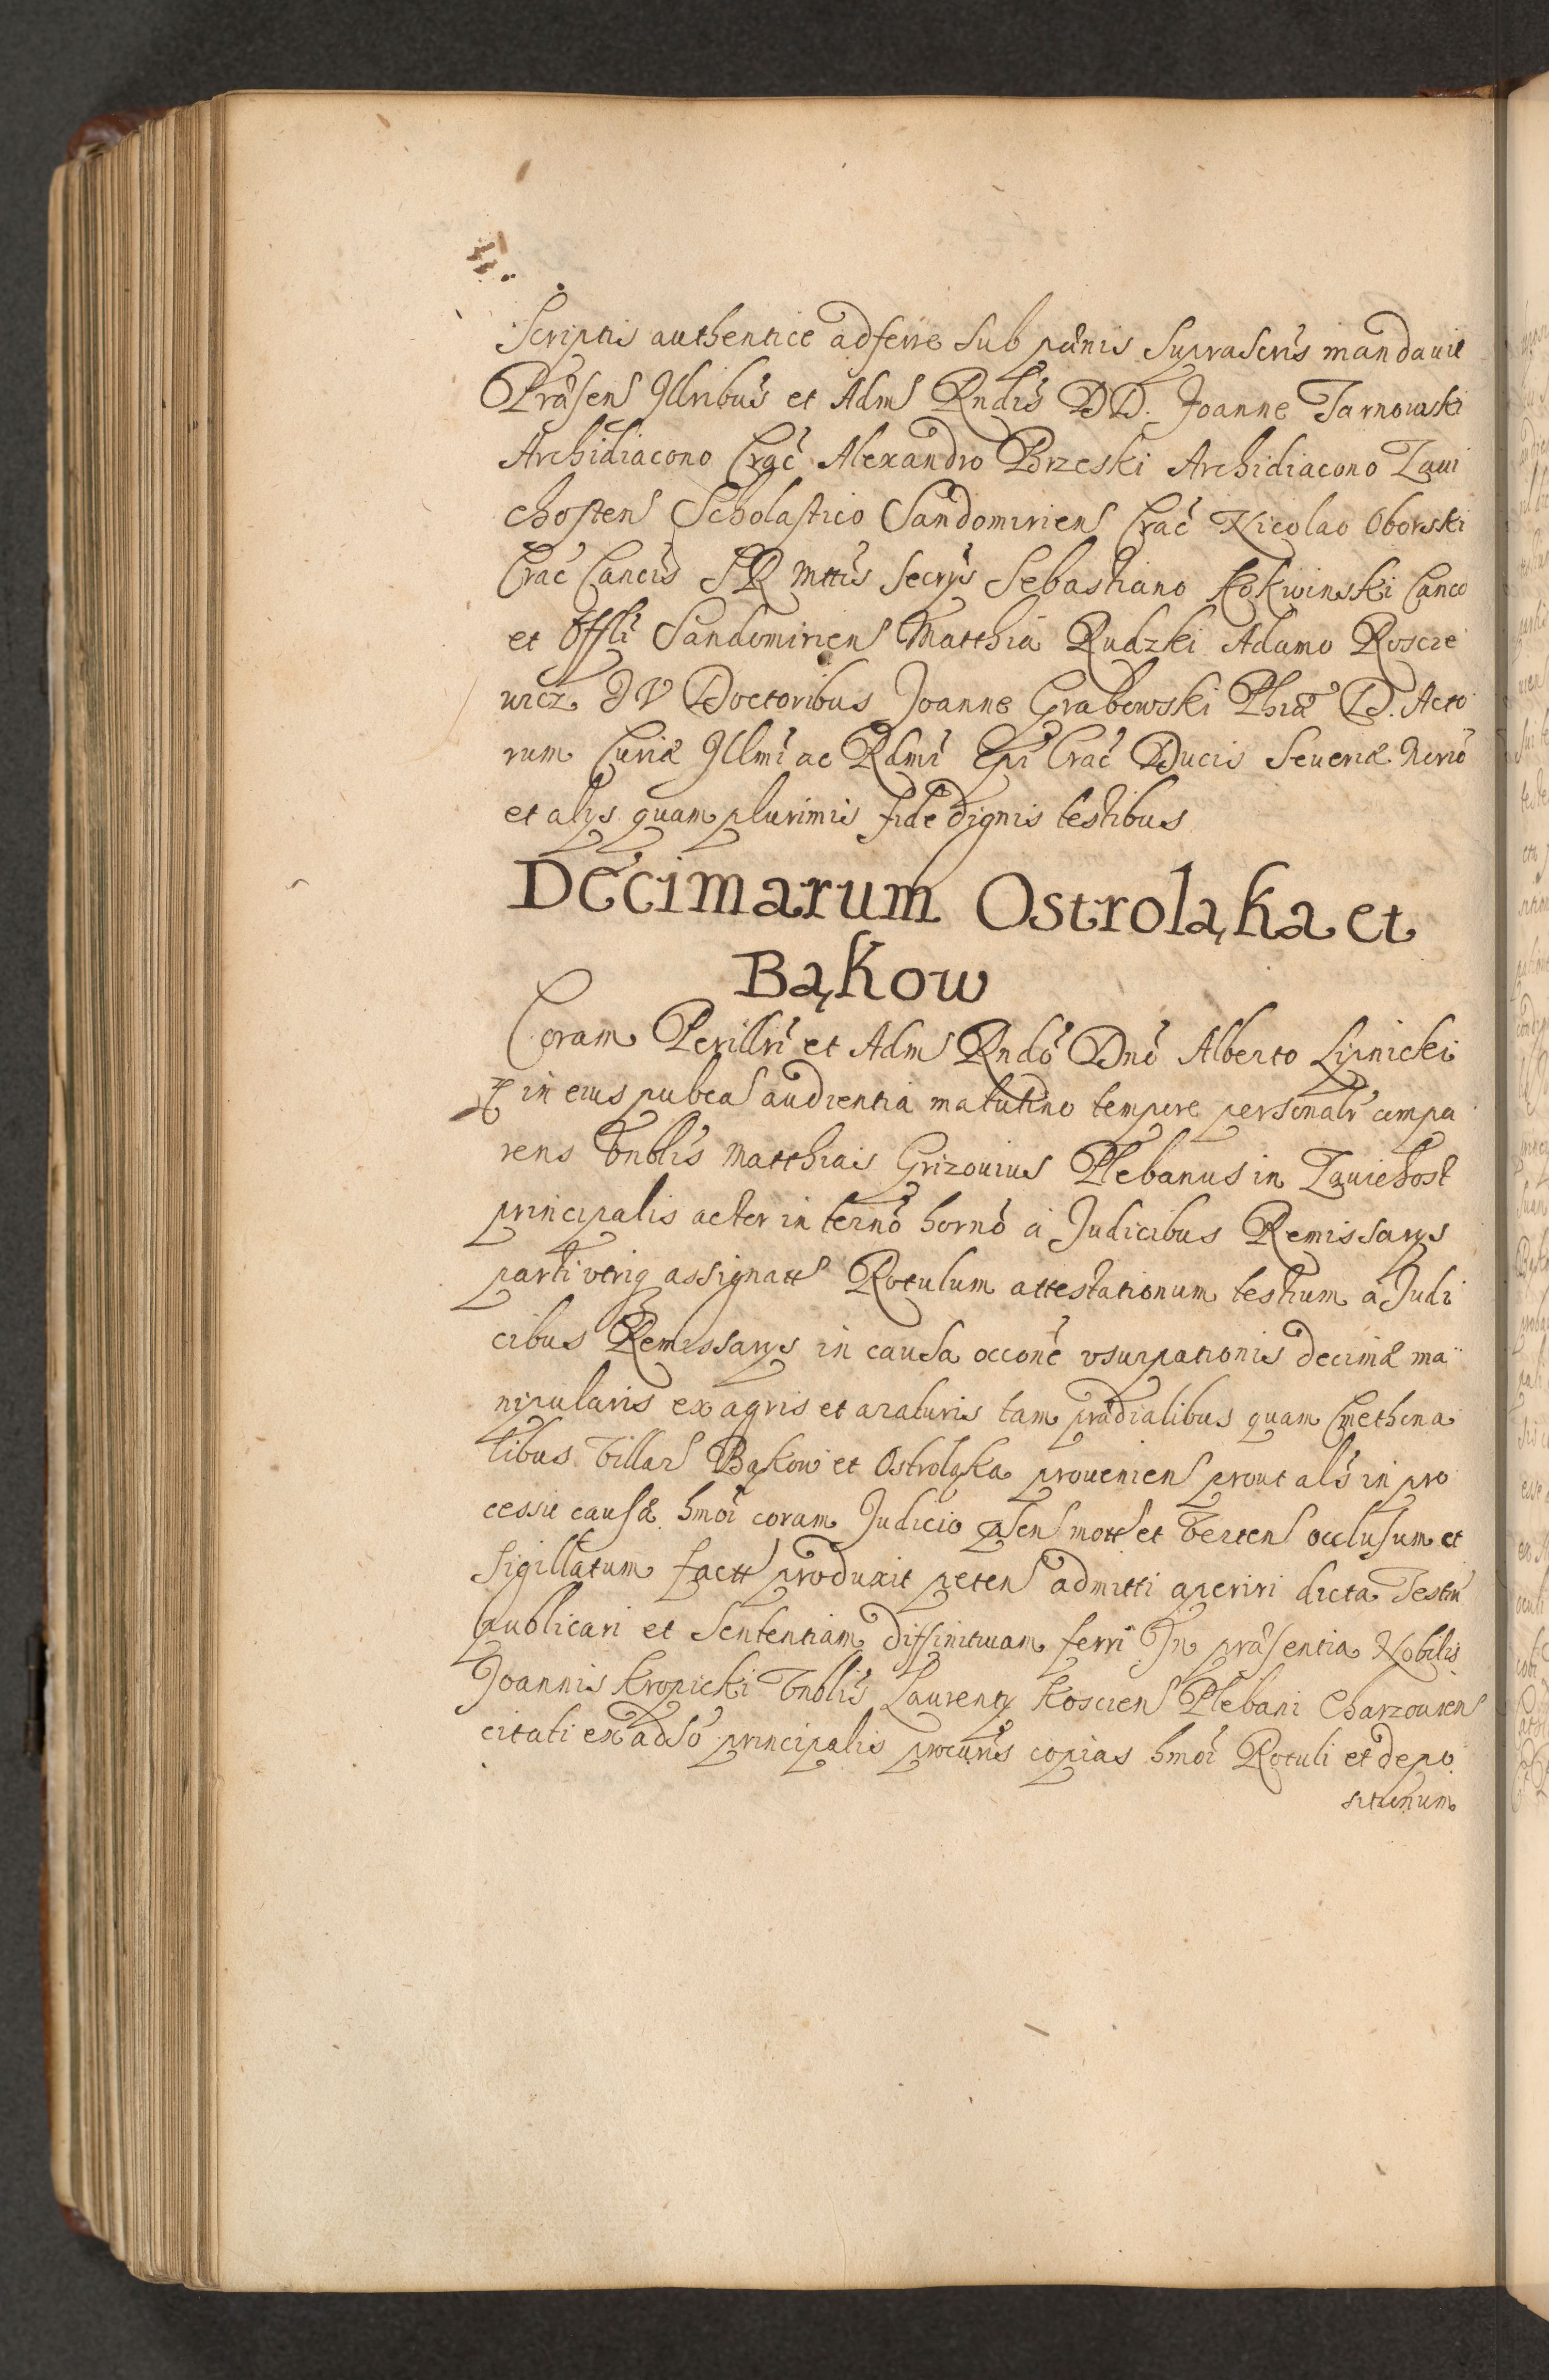 Scriptis authentice adferre sub pœnis suprascris mandauit
Præsen Illribus et Adm Rndis DD. Joanne Tarnowski
Archidiacono Crac Alexandro Brzeski Archidiacono Zaui
chosten Scholastico Sandomirien Crac Nicolao Oborski
Crac Cancis SR Mttis Secrys Sebastiano Kokwinski Canco
et Offli Sandomirien Matthia Rudzki Adamo Roscie
wicz JV Doctoribus Joanne Grabowski Phiæ D. Acto
rum Curiæ Illmi ac Rdmi Epi Crac Ducis Seueriæ Nerio
et alys quam plurimis fide dignis testibus
Decimarum Ostroląka et
Bąkow
Coram Perillri et Adm Rndo Dno Alberto Lipnicki
in eius pubca audientia matutino tempore personalr compa
rens Vnblis Matthias Grizouius Plebanus in Zauichost
principalis actor in termo horno a Judicibus Remissarys
parti vtriq assignatt Rotulum attestationum testium a Judi
cibus Remissarys in causa occone vsurpationis decimæ ma
nipularis ex agris et araturis tam prædialibus quam Cmethona
libus Villar Bąkow et Ostroląka prouenien prout als in pro
cessu causæ hmoi coram Judicio pñsen mott et Verten occlusum et
sigillatum factt produxit peten admitti aperiri dicta Testiu
publicari et Sententiam diffinitiuam ferri In præsentia Nobilis
Joannis Kropicki Vnblis Laurenty Koscien Plebani Charzouien
citati ex adso principalis procuris copias hmoi Rotuli et depo
sitionum